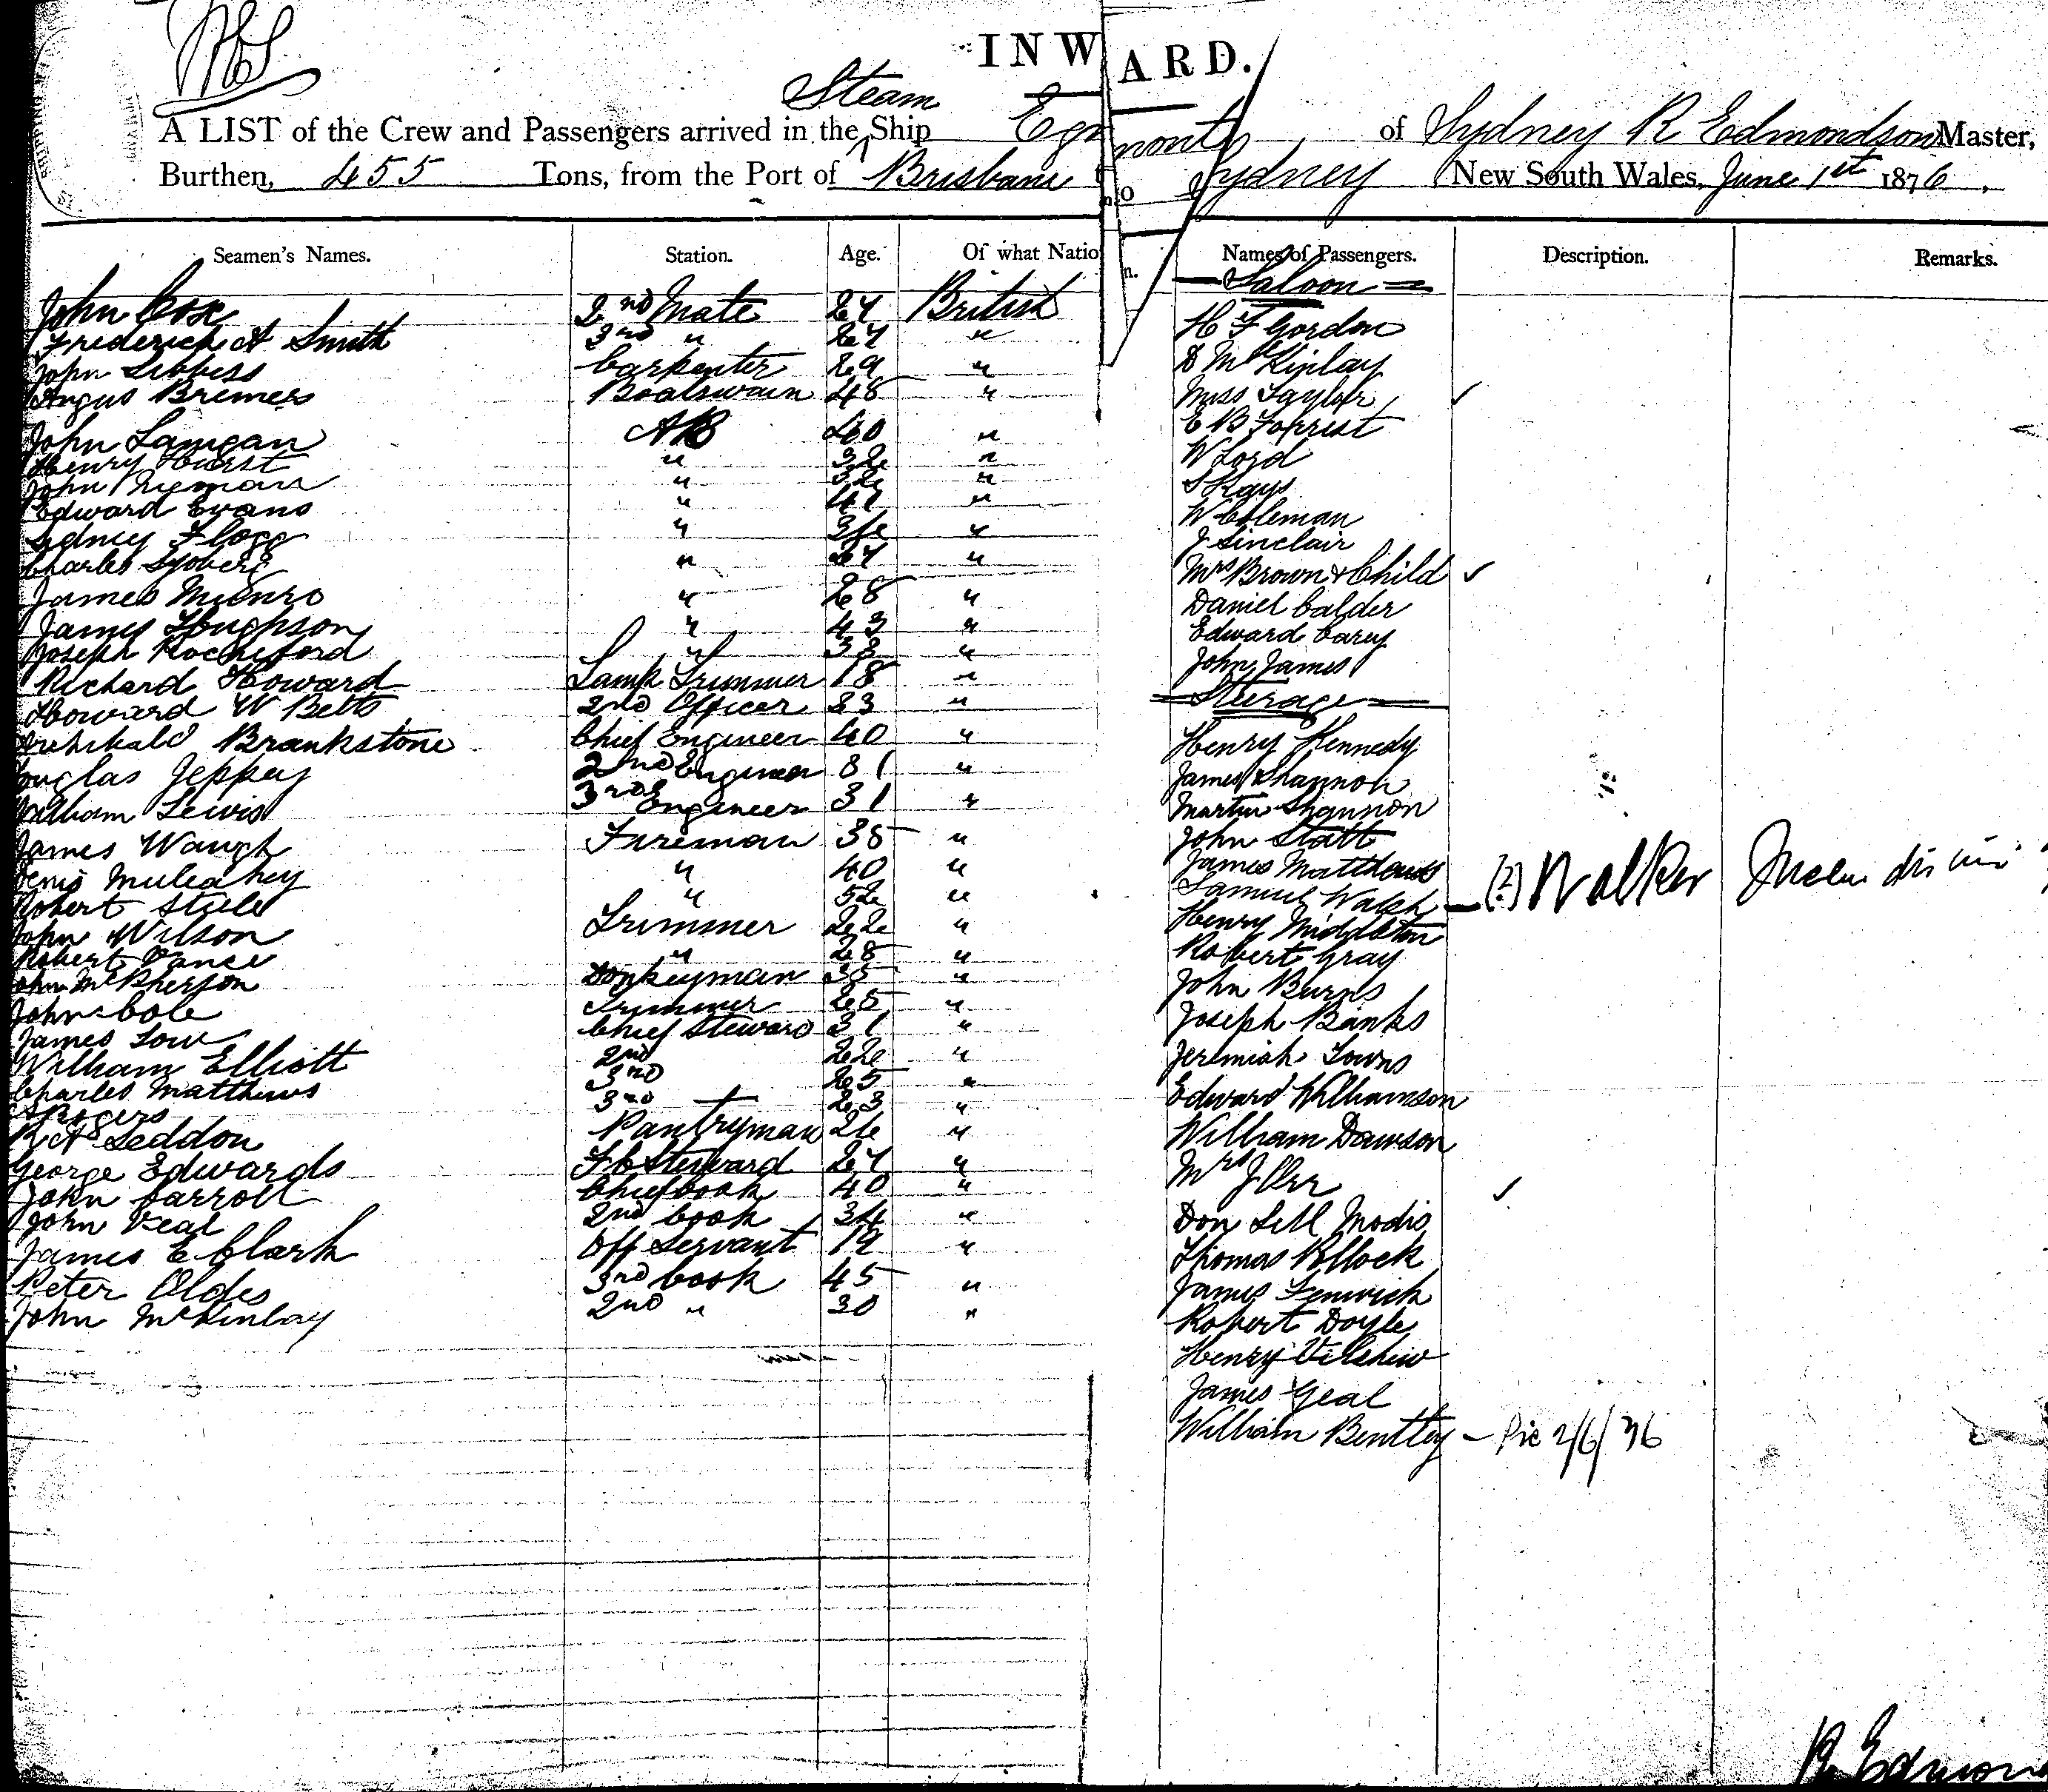 INWARD.
Steam
A LIST of the Crew and Passengers arrived in the Ship Egmont of Sydney R Edmondson Master,
Burthen, 455 Tons, from the Port of Brisbane to Sydney New South Wales, June 1st 1876.
Seamen's Names. Station. Age. Of what Nation.
John Cox 2nd Mate 27 British
Frederick A Smith 3rd " 27 "
John Libbess Carpenter 29 "
Angus Bremer Boatswain 48 "
John Lanigan AB 40 "
Henry Hurst " 32 "
John Nieman " 32 "
Edward Evans " 41 "
Sidney Flogg " 36 "
Charles Syoberg " 27 "
James Munro " 28 "
James Thompson " 43 "
Joseph Rocheford " 38 "
Richard Howard Lamp Trimmer 18 "
Howard W Betts 2nd Officer 33 "
Archibald Brankstone Chief Engineer 40 "
Douglas Jeppey 2nd Engineer 31 "
William Lewis 3rd Engineer 31 "
James Waugh Fireman 35 "
Denis Mulcahey " 40 "
Robert Steele " 52 "
John Wilson Trimmer 22 "
Robert Vance " 28 "
John McPherson Donkeyman 35 "
John Cole Trimmer 25 "
James Low Chief Steward 31 "
William Elliott 2nd 22 "
Charles Matthews 3rd 25 "
Rogers 3rd 23 "
R A Seddon Pantryman 26 "
George Edwards F C Steward 27 "
John Carroll Chief Cook 40 "
John Veal 2nd Cook 34 "
James E Clark Off Servant 19 "
Peter Oldes 3rd Cook 45 "
John McKinlay 2nd " 30 "
Names of Passengers. Description. Remarks.
Saloon
H F Gordon
D McKinlay
Miss Taylor ✓
E B Forrest
W Lord
S Kays
W Coleman
J Sinclair
Mrs Brown & Child ✓
Daniel Calder
Edward Carey
John James
Steerage
Henry Kennedy
James Shannon
Martin Shannon
John Statt
James Matthews
Samuel Walsh - (?) Walker
Henry Middleton
Robert Gray
John Burns
Joseph Banks
Jeremiah Towns
Edward Williamson
William Dawson
Mrs J Orr ✓
Don Modis
Thomas Pollock
James Fenwick
Robert Doyle
Henry Vilshiw
James Geal
William Bentley - Pic 2/6/76
R Edmon